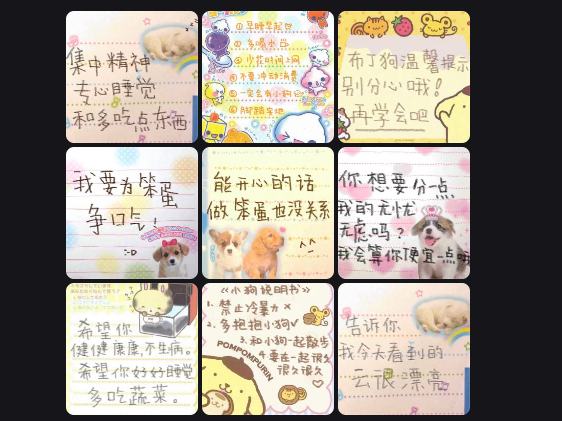 集中精神
专心睡觉
和多吃点东西
① 早睡早起包
② 多喝水包
③ 少花时间上网
④ 不要冲动消费
⑤ 一定会有小狗
⑥ 脚踏实地
布丁狗温馨提示
别分心哦!
再学会吧
我要为笨蛋
争口气!
:D
能开心的话
做笨蛋也没关系
^^
你想要分一点
我的无忧
无虑吗?
我会算你便宜一点哦
希望你
健健康康,不生病。
希望你好好睡觉
多吃蔬菜。
《小狗说明书》
1. 禁止冷暴力 x
2. 多抱抱小狗√
3. 和小狗一起散步
4. 要在一起很久
很久很久
POMPOMPURIN
告诉你
我今天看到的
云很漂亮